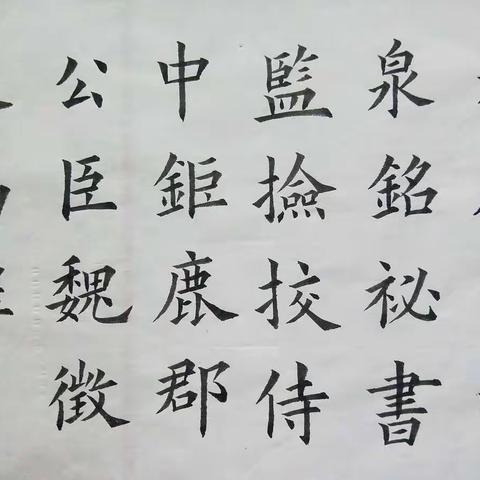 泉銘祕書
監撿挍侍
中鉅鹿郡
公臣魏徵